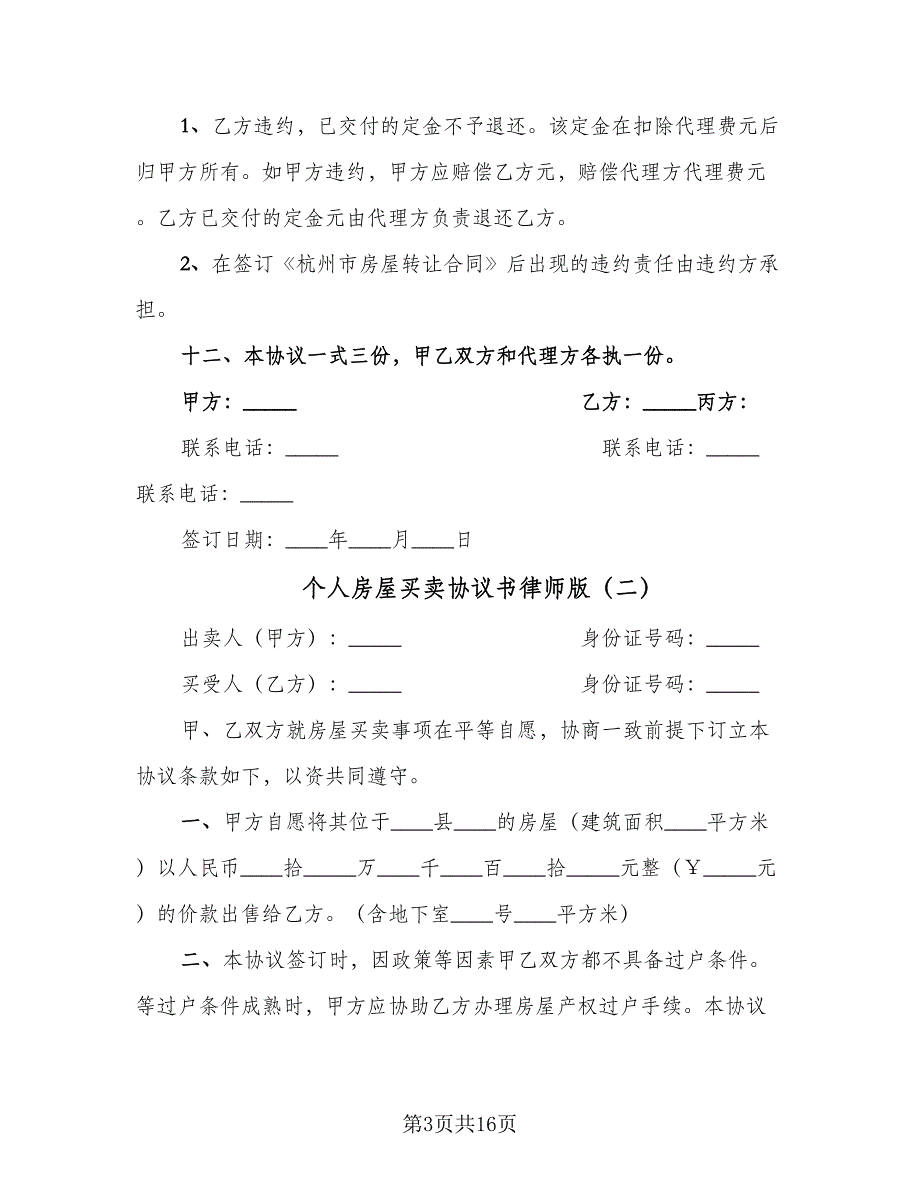 1、乙方违约，已交付的定金不予退还。该定金在扣除代理费元后
归甲方所有。如甲方违约，甲方应赔偿乙方元，赔偿代理方代理费元
。乙方已交付的定金元由代理方负责退还乙方。
2、在签订《杭州市房屋转让合同》后出现的违约责任由违约方承
担。
十二、本协议一式三份，甲乙双方和代理方各执一份。
甲方：_____ 乙方：_____丙方：
联系电话：_____ 联系电话：_____
联系电话：_____
签订日期：____年____月____日
个人房屋买卖协议书律师版（二）
出卖人（甲方）：_____ 身份证号码：_____
买受人（乙方）：_____ 身份证号码：_____
甲、乙双方就房屋买卖事项在平等自愿，协商一致前提下订立本
协议条款如下，以资共同遵守。
一、甲方自愿将其位于____县____的房屋（建筑面积____平方米
）以人民币____拾_____万____千____百____拾_____元整（￥_____元
）的价款出售给乙方。（含地下室____号____平方米）
二、本协议签订时，因政策等因素甲乙双方都不具备过户条件。
等过户条件成熟时，甲方应协助乙方办理房屋产权过户手续。本协议
第3页共16页